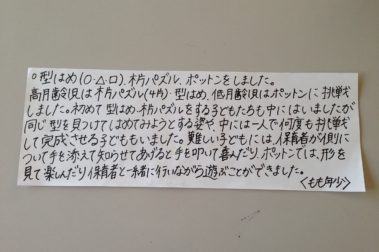 ○型はめ(○・△・□)、木片パズル、ポットンをしました。
高月齢児は木片パズル(4片)・型はめ、低月齢児はポットンに挑戦
しました。初めて型はめ・木片パズルをする子どもたちも中にはいましたが
同じ型を見つけてはめてみようとする姿や、中には一人で何度も挑戦
して完成させる子どももいました。難しい子どもには、保育者が側に
ついて手を添えて知らせてあげると手を叩いて喜んだり、ポットンでは、形を
見て楽しんだり保育者と一緒に行いながら遊ぶことができました。
<もも年少>